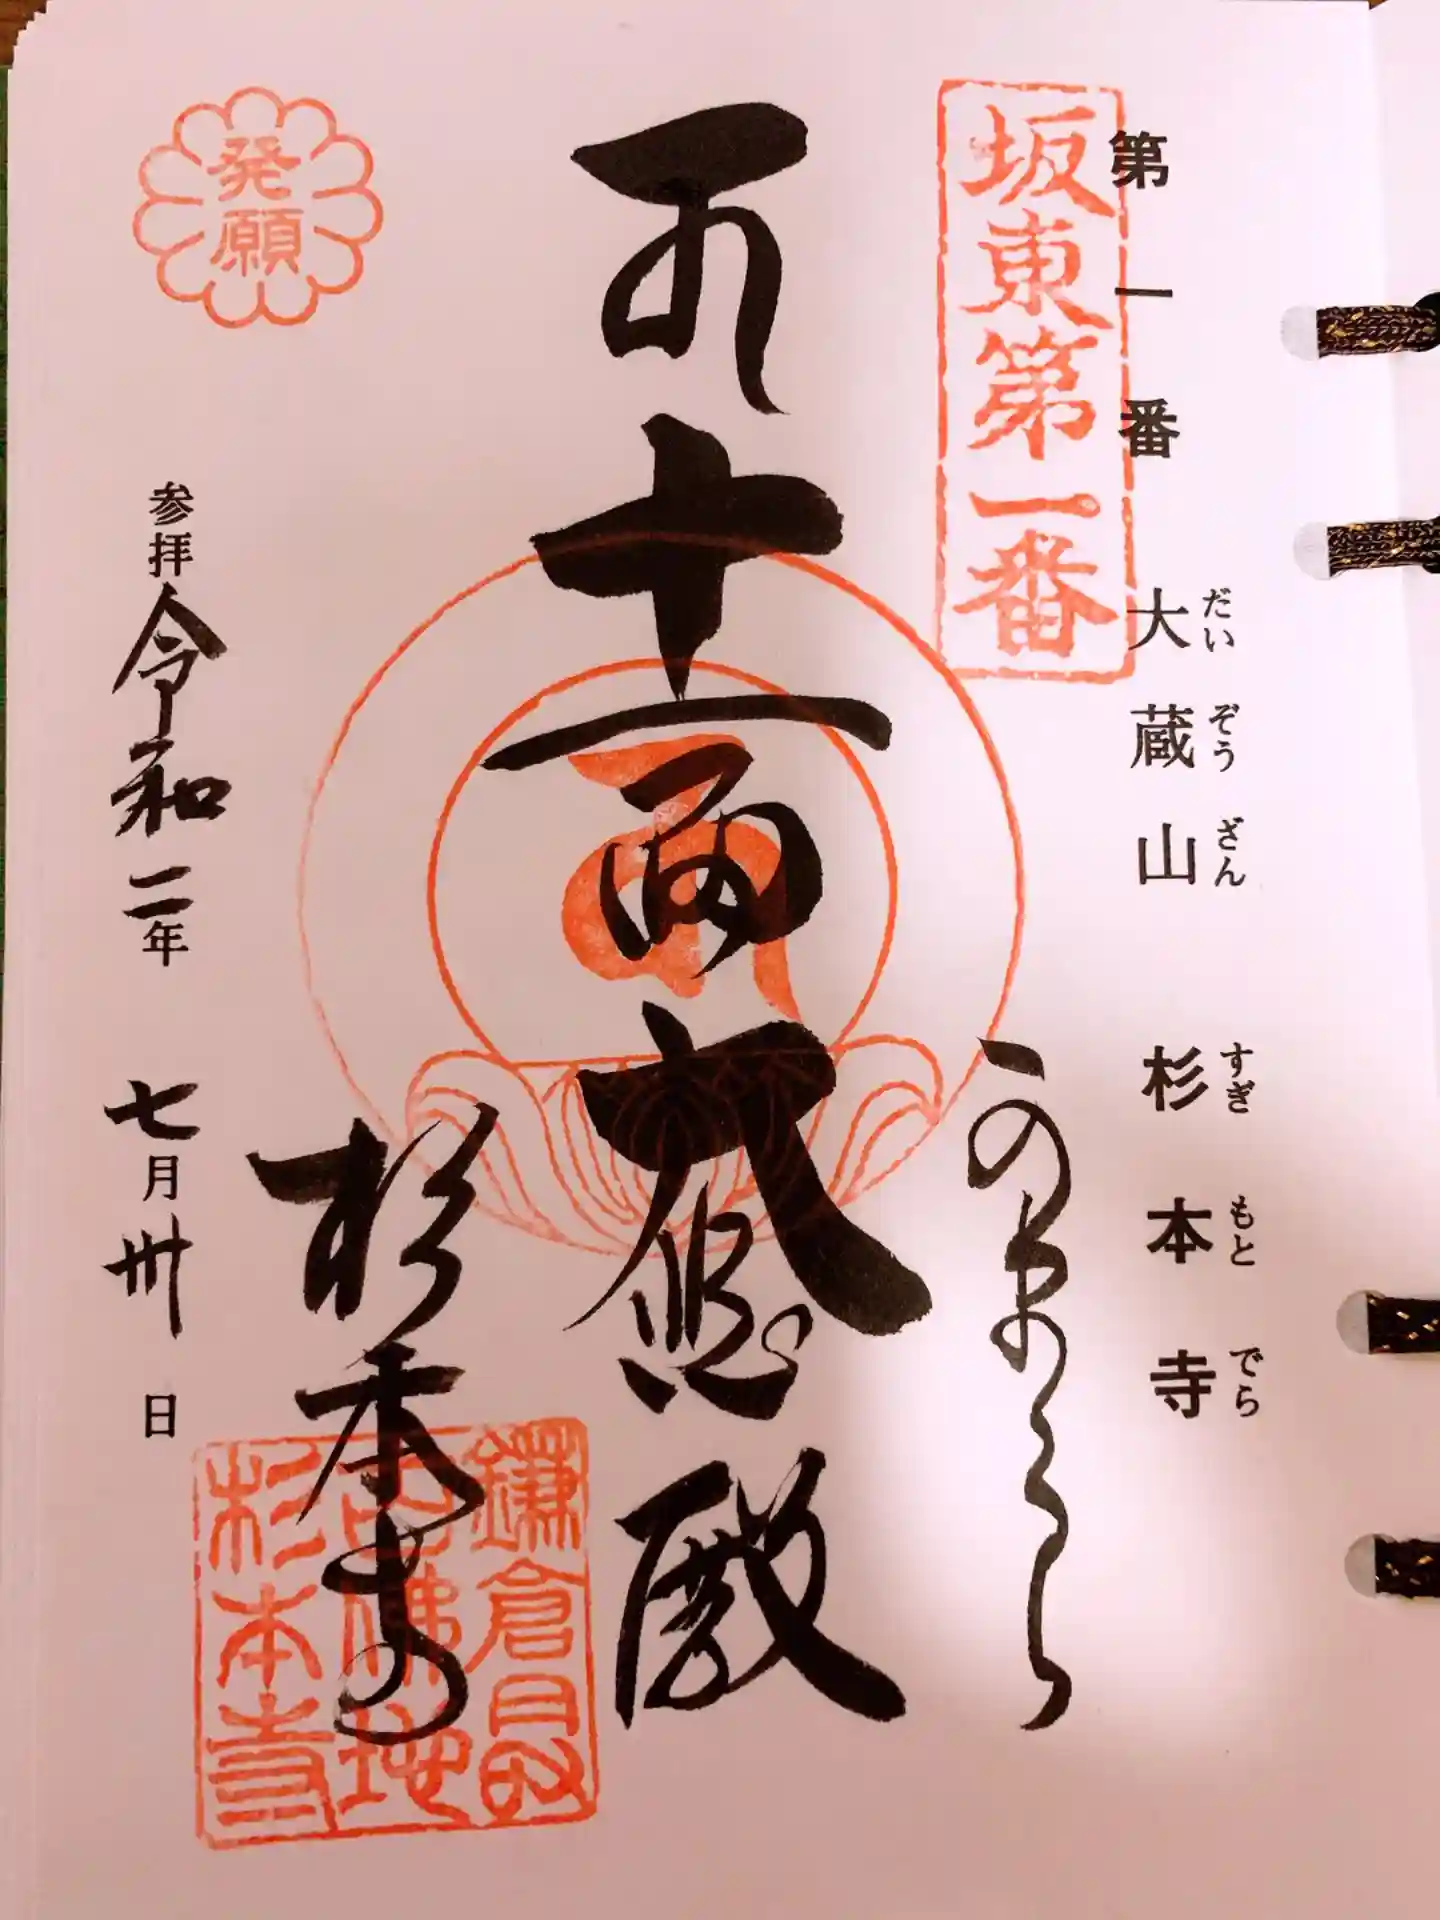 第一番 大蔵山 杉本寺
だいぞうざん すぎもとでら
坂東第一番
かまくら
十一面大悲殿
杉本寺
鎌倉最
古佛地
杉本寺
発願
参拝 令和二年 七月卅日